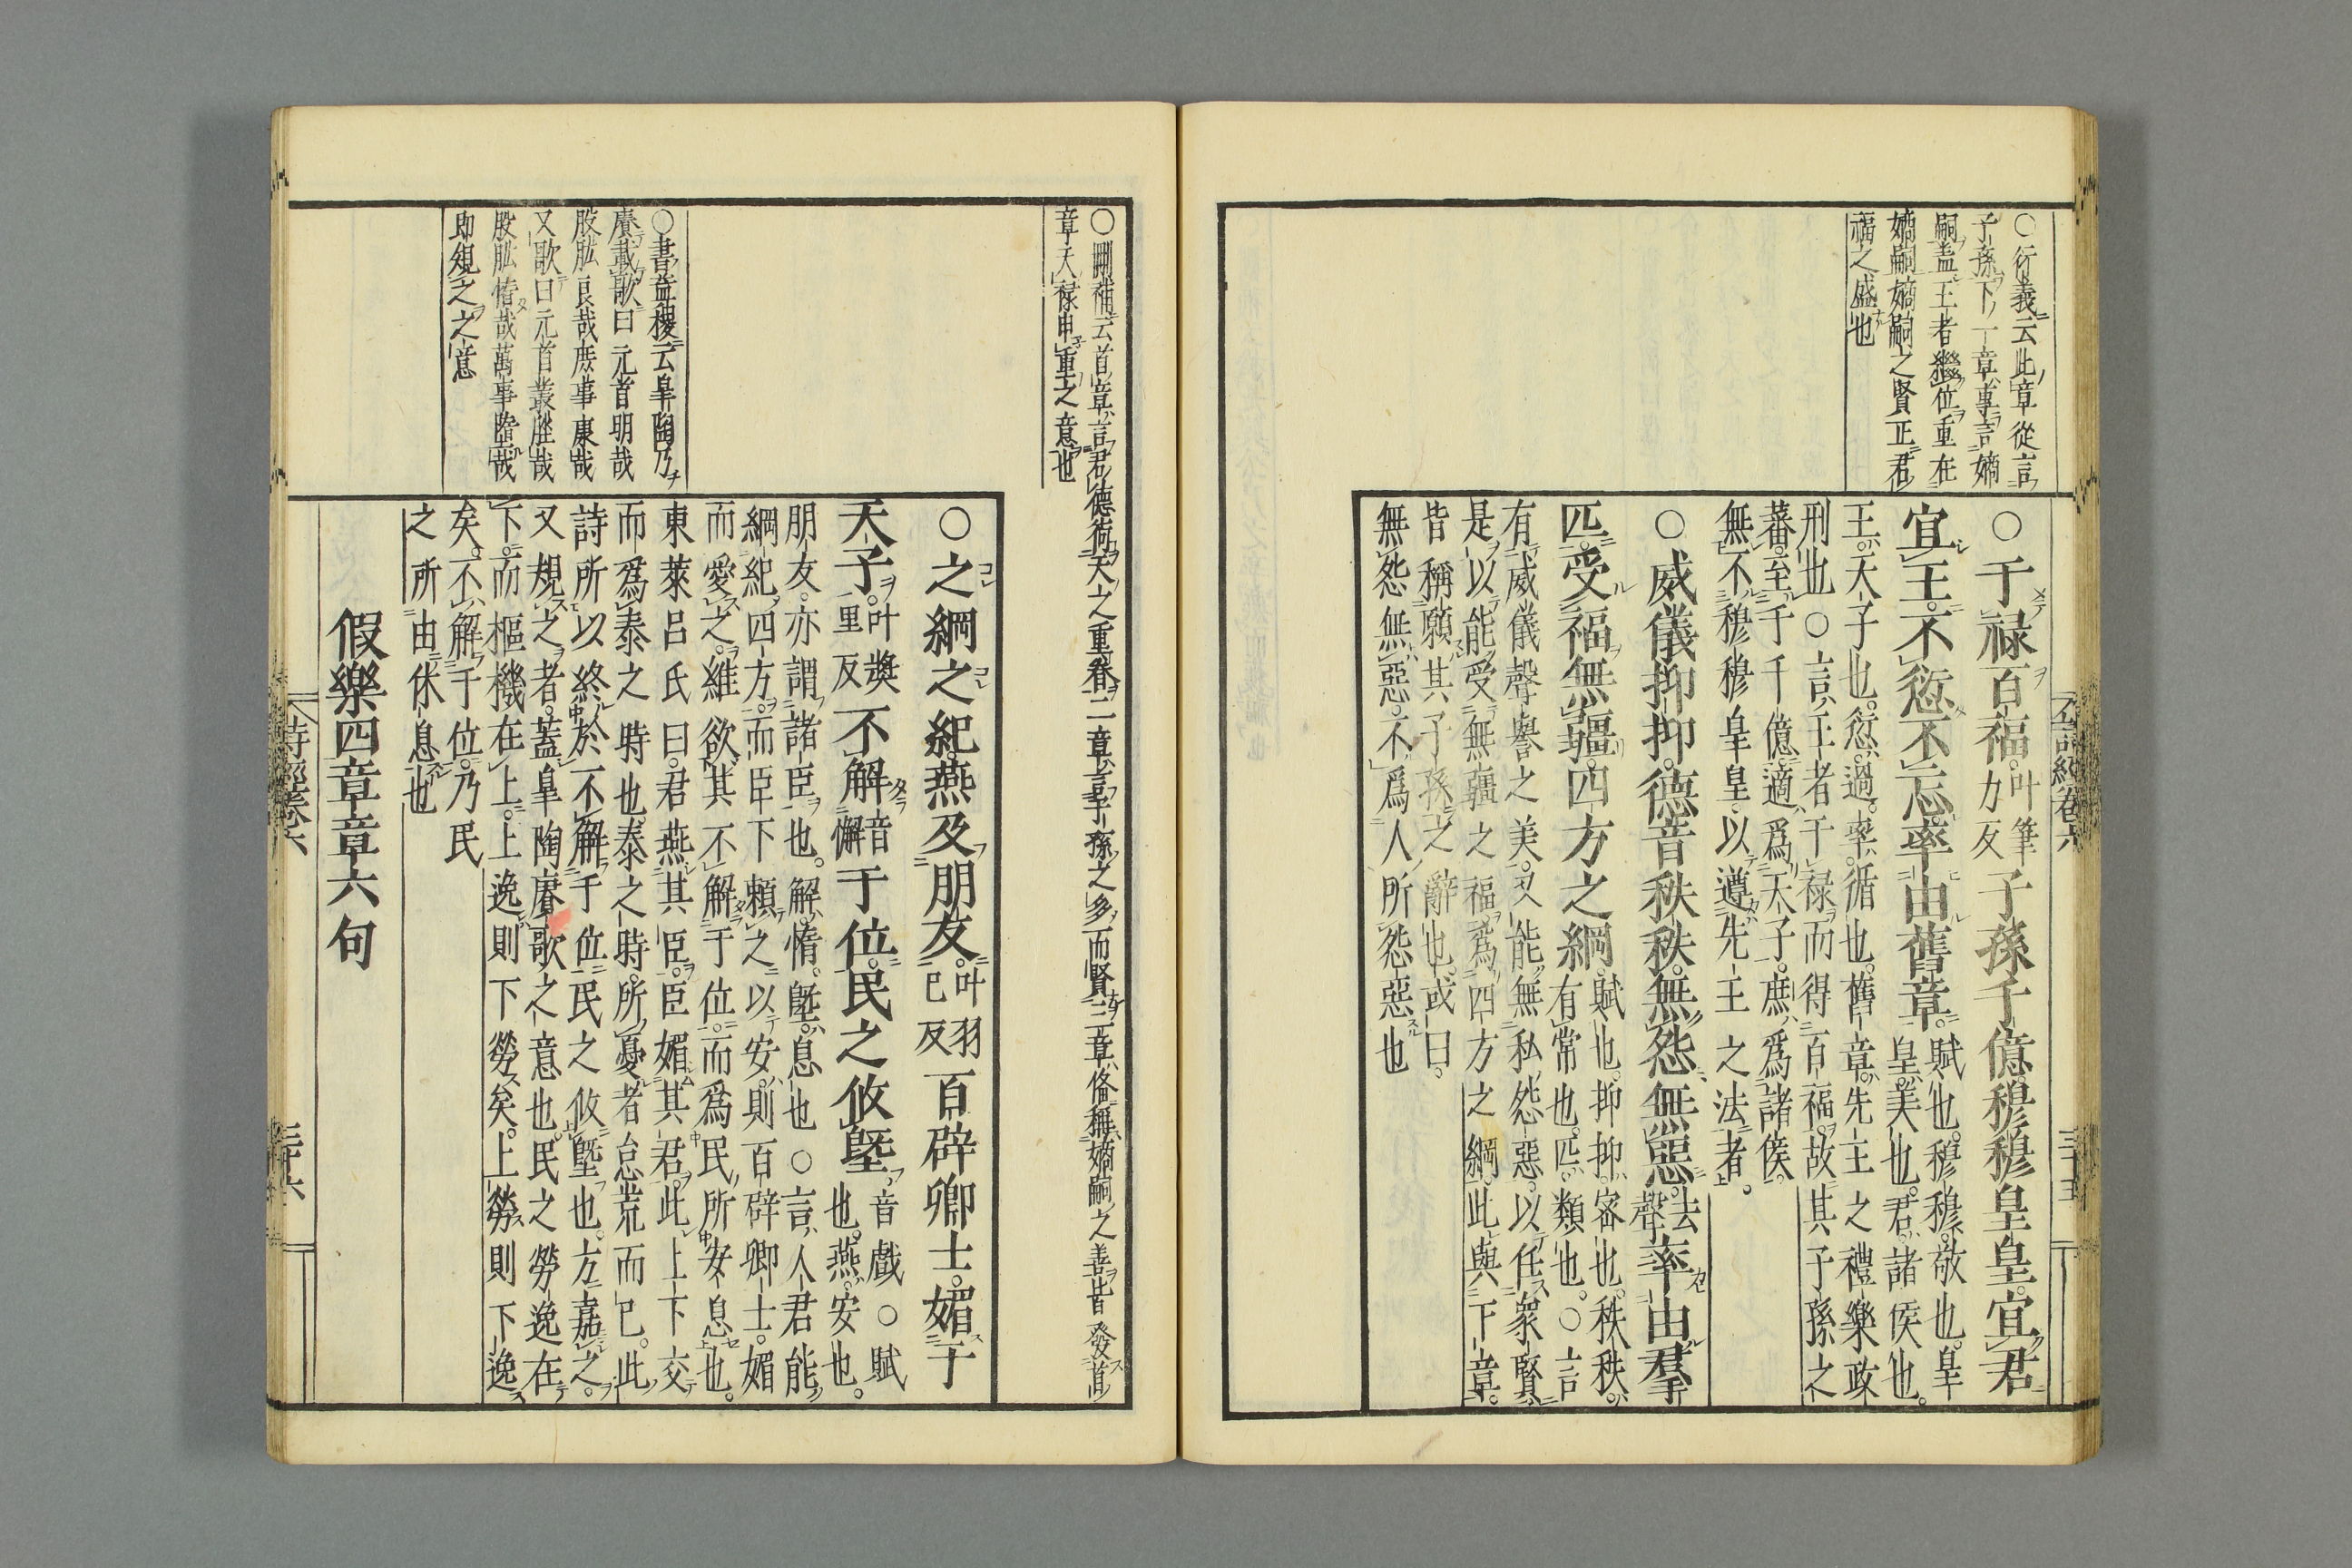 〇衍義云此章從言
子孫下一章專言嫡
嗣蓋王者繼位重在
嫡嗣嫡嗣之賢正君
福之盛也
〇干祿百福叶筆力反子孫千億穆穆皇皇宜君
宜王不愆不忘率由舊章賦也穆穆敬也皇皇美也君諸侯也
王天子也愆過率循也舊章先王之禮樂政
刑也〇言王者干祿而得百福故其子孫之
蕃至于千億適爲天子庶爲諸侯
無不穆穆皇皇以遵先王之法者
〇威儀抑抑德音秩秩無怨無惡去聲率由羣
匹受福無疆四方之綱賦也抑抑密也秩秩有常也匹類也〇言
有威儀聲譽之美又能無私怨惡以任衆賢
是以能受無疆之福爲四方之綱此與下章
皆稱願其子孫之辭也或曰
無怨無惡不爲人所怨惡也
〇刪補云首章言君德荷天之重眷二章言子孫之多而賢三章俻稱嫡嗣之善皆發首
章天祿申重之意也
〇書益稷云皐陶乃
賡載歌曰元首明哉
股肱良哉庶事康哉
又歌曰元首叢脞哉
股肱惰哉萬事墮哉
即規之之意
〇之綱之紀燕及朋友叶羽已反百辟卿士媚于
天子叶奬里反不解音懈于位民之攸墍音戲〇賦也燕安也
朋友亦謂諸臣也解惰墍息也〇言人君能
綱紀四方而臣下賴之以安則百辟卿士媚
而愛之維欲其不解于位而爲民所安息也
東萊呂氏曰君燕其臣臣媚其君此上下交
而爲泰之時也泰之時所憂者怠荒而已此
詩所以終於不解于位民之攸墍也方嘉之
又規之者蓋皐陶賡歌之意也民之勞逸在
下而樞機在上上逸則下勞矣上勞則下逸
矣不解于位乃民
之所由休息也
假樂四章章六句
詩經卷六
三十六